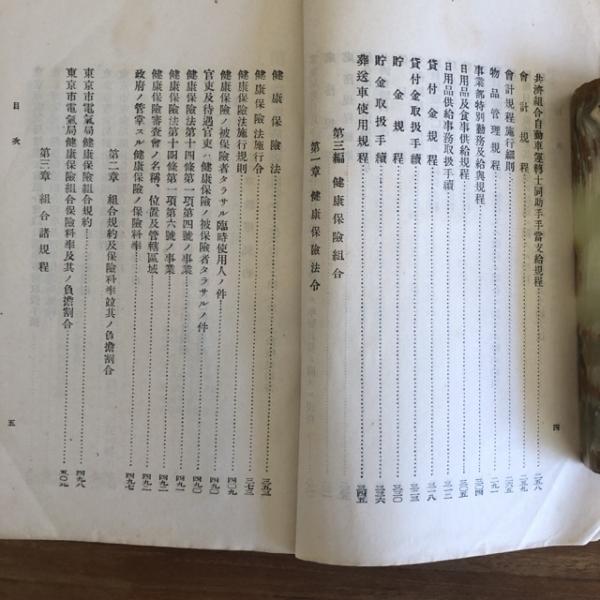 共濟組合自動車運轉士同助手手當支給規程……二五八
會計規程……二五九
會計規程施行細則……二六五
物品管理規程……二九一
事業部特別勤務及給與規程……三〇四
日用品及食事供給規程……三〇五
日用品供給事務取扱手續……三一二
貸付金規程……三一八
貸付金取扱手續……三二三
貯金規程……三三〇
貯金取扱手續……三三六
葬送車使用規程……三四五
第三編 健康保險組合
第一章 健康保險法令
四
健康保險法……三五三
健康保險法施行令……三七三
健康保險法施行規則……四〇九
健康保險ノ被保險者タラサル臨時使用人ノ件……四九〇
官吏及待遇官吏ハ健康保險ノ被保險者タラサルノ件……四九〇
健康保險法第十四條第一項第四號ノ事業……四九一
健康保險法第十四條第一項第六號ノ事業……四九一
健康保險審査會ノ名稱、位置及管轄區域……四九一
政府ノ管掌スル健康保險ノ保險料率……四九七
第二章 組合規約及保險料率竝其ノ負擔割合
東京市電氣局健康保險組合規約……四九八
東京市電氣局健康保險組合保險料率及其ノ負擔割合……五〇九
第三章 組合諸規程
目次
五